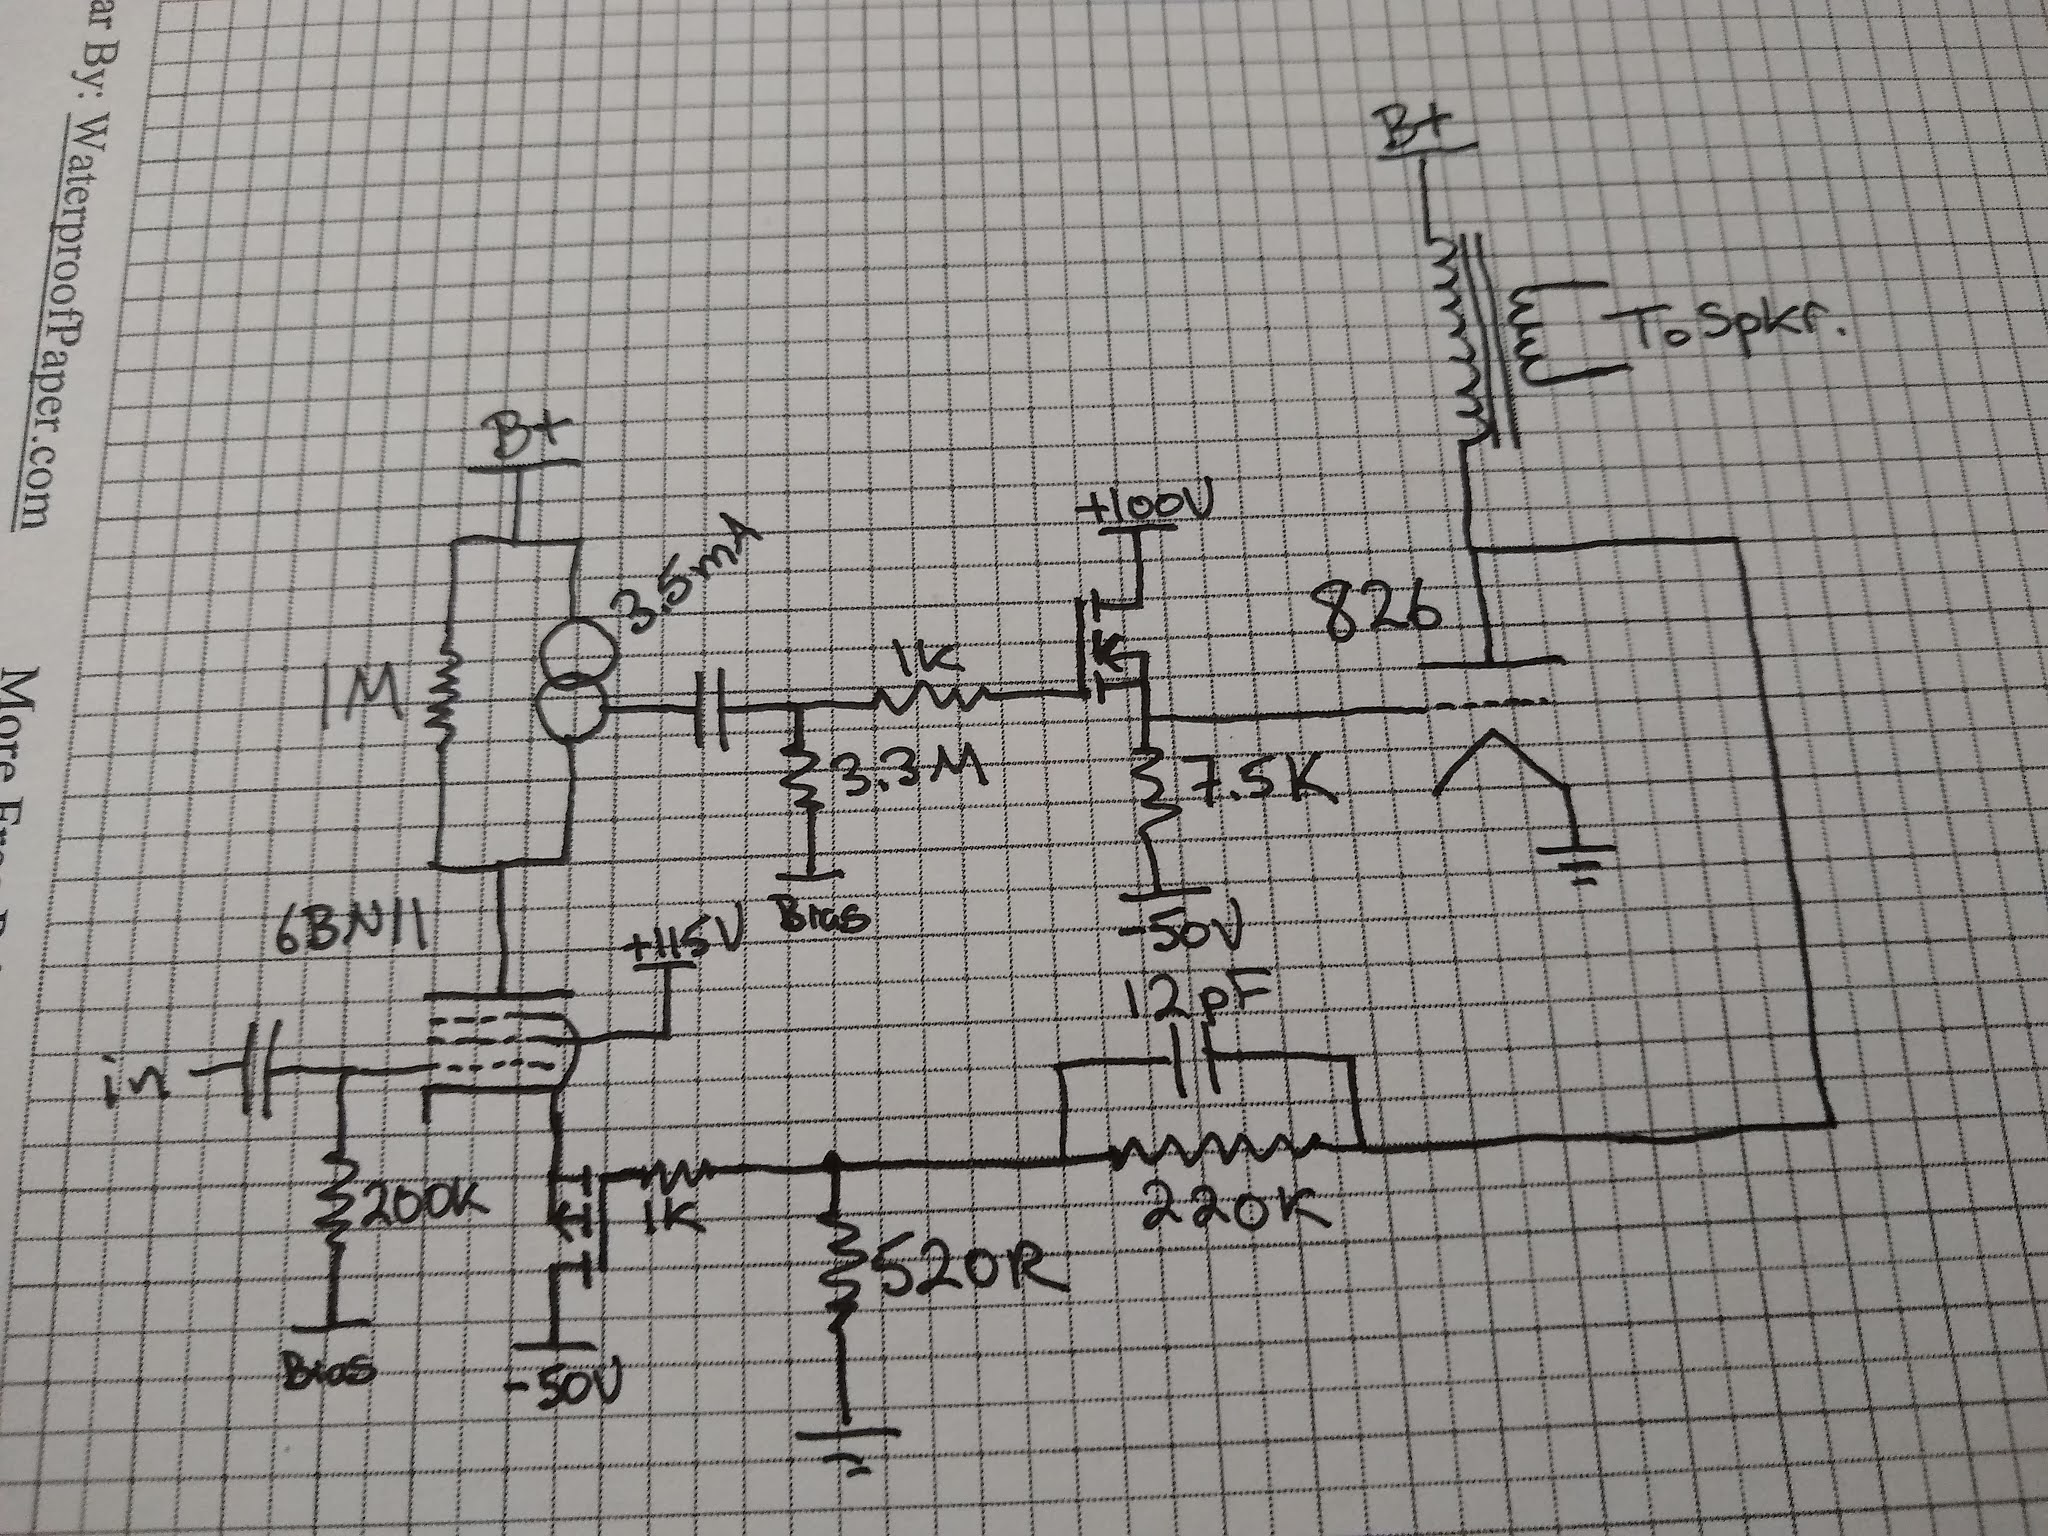 ar By: WaterproofPaper.com
More Free
B+
To Spkr.
B+
3.5mA
+100V
1M
1K
826
3.3M
7.5K
6BN11
+115V
Bias
-50V
12pF
in
200K
1K
220K
520R
Bias
-50V